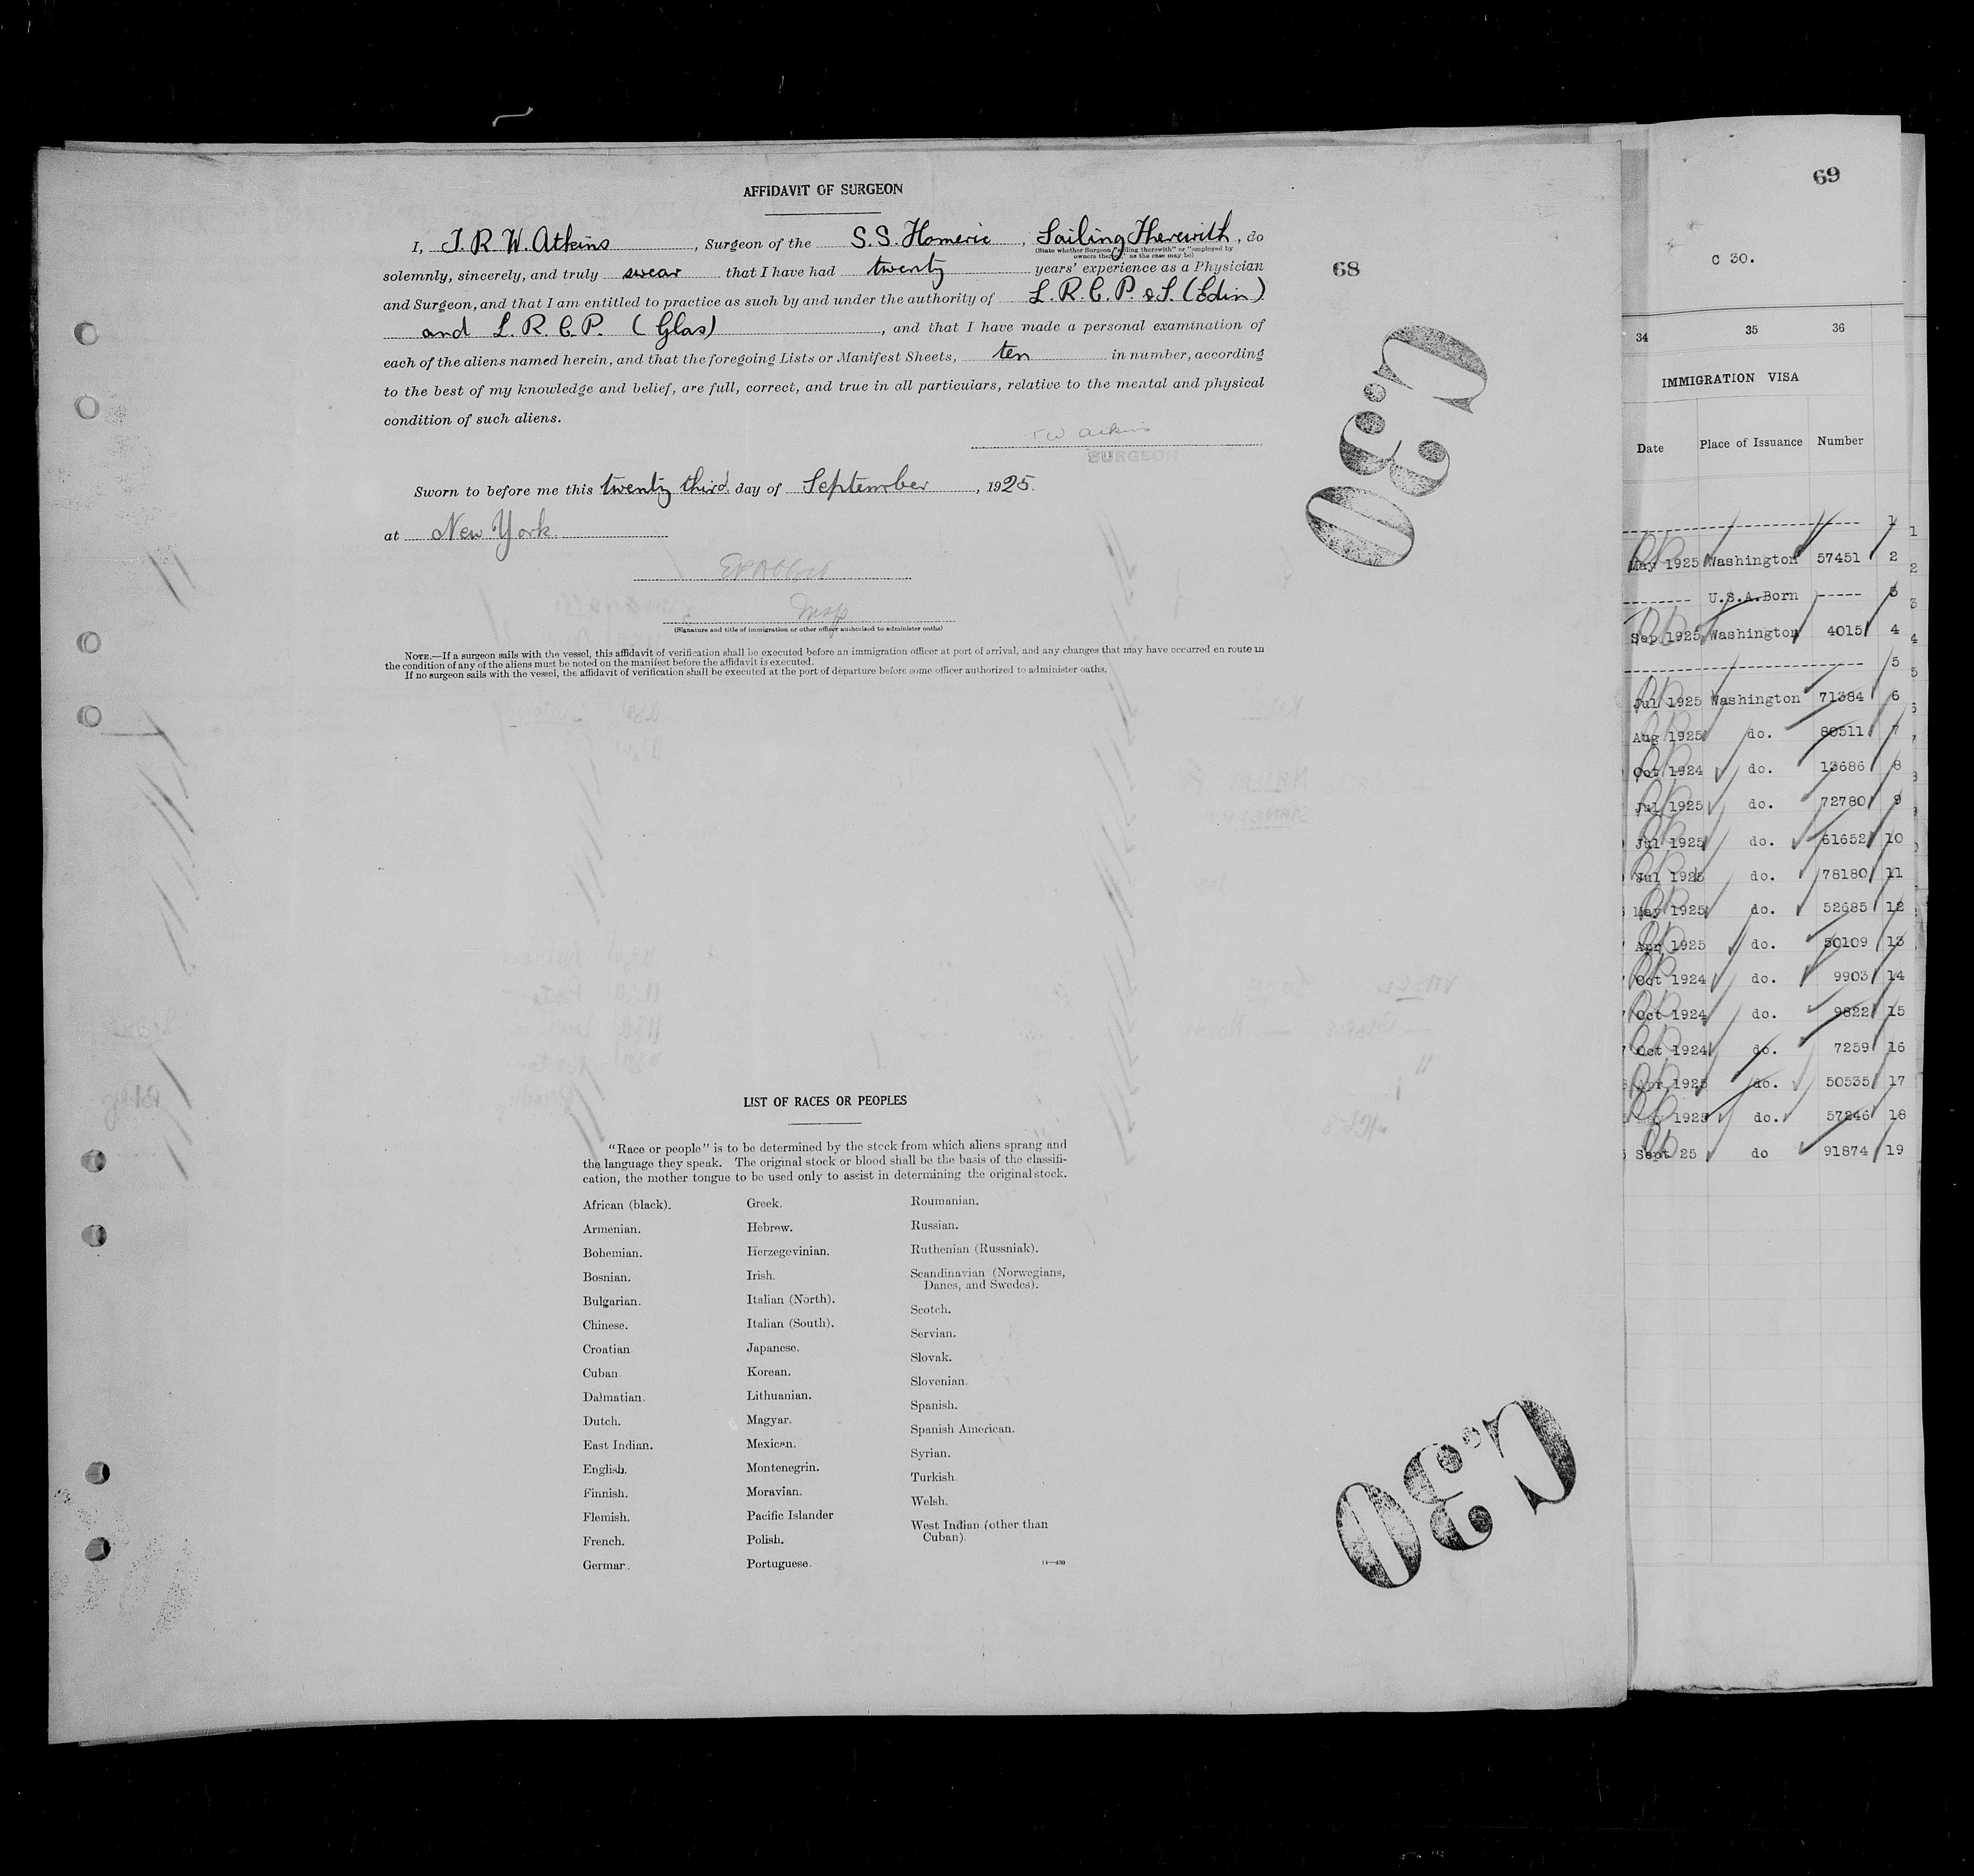 AFFIDAVIT OF SURGEON
I, J. R. W. Atkins, Surgeon of the S.S. Homeric, Sailing Therewith, do
(State whether Surgeon "sailing therewith" or "employed by
owners thereof," as the case may be)
solemnly, sincerely, and truly swear that I have had twenty years' experience as a Physician
and Surgeon, and that I am entitled to practice as such by and under the authority of L. R. C. P. & S. (Edin)
and L. R. C. P. (Glas), and that I have made a personal examination of
each of the aliens named herein, and that the foregoing Lists or Manifest Sheets, ten in number, according
to the best of my knowledge and belief, are full, correct, and true in all particulars, relative to the mental and physical
condition of such aliens.
W Atkins
SURGEON
Sworn to before me this twenty third day of September, 1925.
at New York.
Insp
(Signature and title of immigration or other officer authorized to administer oaths)
NOTE.—If a surgeon sails with the vessel, this affidavit of verification shall be executed before an immigration officer at port of arrival, and any changes that may have occurred en route in
the condition of any of the aliens must be noted on the manifest before the affidavit is executed.
If no surgeon sails with the vessel, the affidavit of verification shall be executed at the port of departure before some officer authorized to administer oaths.
68
C30
LIST OF RACES OR PEOPLES
"Race or people" is to be determined by the stock from which aliens sprang and
the language they speak. The original stock or blood shall be the basis of the classifi-
cation, the mother tongue to be used only to assist in determining the original stock.
African (black).
Armenian.
Bohemian.
Bosnian.
Bulgarian.
Chinese.
Croatian
Cuban.
Dalmatian.
Dutch.
East Indian.
English.
Finnish.
Flemish.
French.
German.
Greek.
Hebrew.
Herzegovinian.
Irish.
Italian (North).
Italian (South).
Japanese.
Korean.
Lithuanian.
Magyar.
Mexican.
Montenegrin.
Moravian.
Pacific Islander
Polish.
Portuguese.
Roumanian.
Russian.
Ruthenian (Russniak).
Scandinavian (Norwegians,
Danes, and Swedes).
Scotch.
Servian.
Slovak.
Slovenian.
Spanish.
Spanish American.
Syrian.
Turkish.
Welsh.
West Indian (other than
Cuban).
14—430
C30
69
C 30.
34 35 36
IMMIGRATION VISA
Date Place of Issuance Number
1
May 1925 Washington 57451 2
U.S.A.Born 3
Sep 1925 Washington 4015 4
5
Jul 1925 Washington 71384 6
Aug 1925 do. 80511 7
Oct 1924 do. 13686 8
Jul 1925 do. 72780 9
Jul 1925 do. 61652 10
Jul 1925 do. 78180 11
May 1925 do. 52685 12
Apr 1925 do. 50109 13
Oct 1924 do. 9903 14
Oct 1924 do. 9822 15
Oct 1924 do. 7259 16
Apr 1925 do. 50535 17
1925 do. 57246 18
Sept 25 do 91874 19